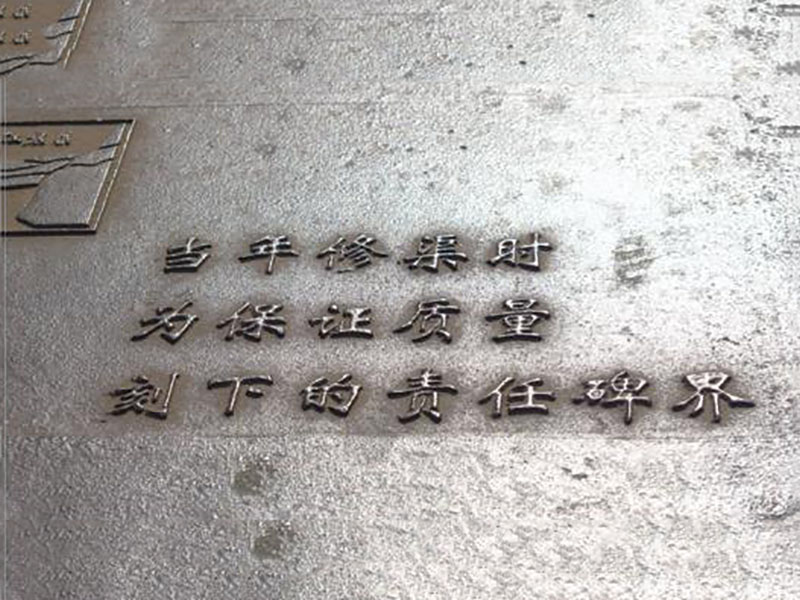 当年修渠时
为保证质量
刻下的责任碑界